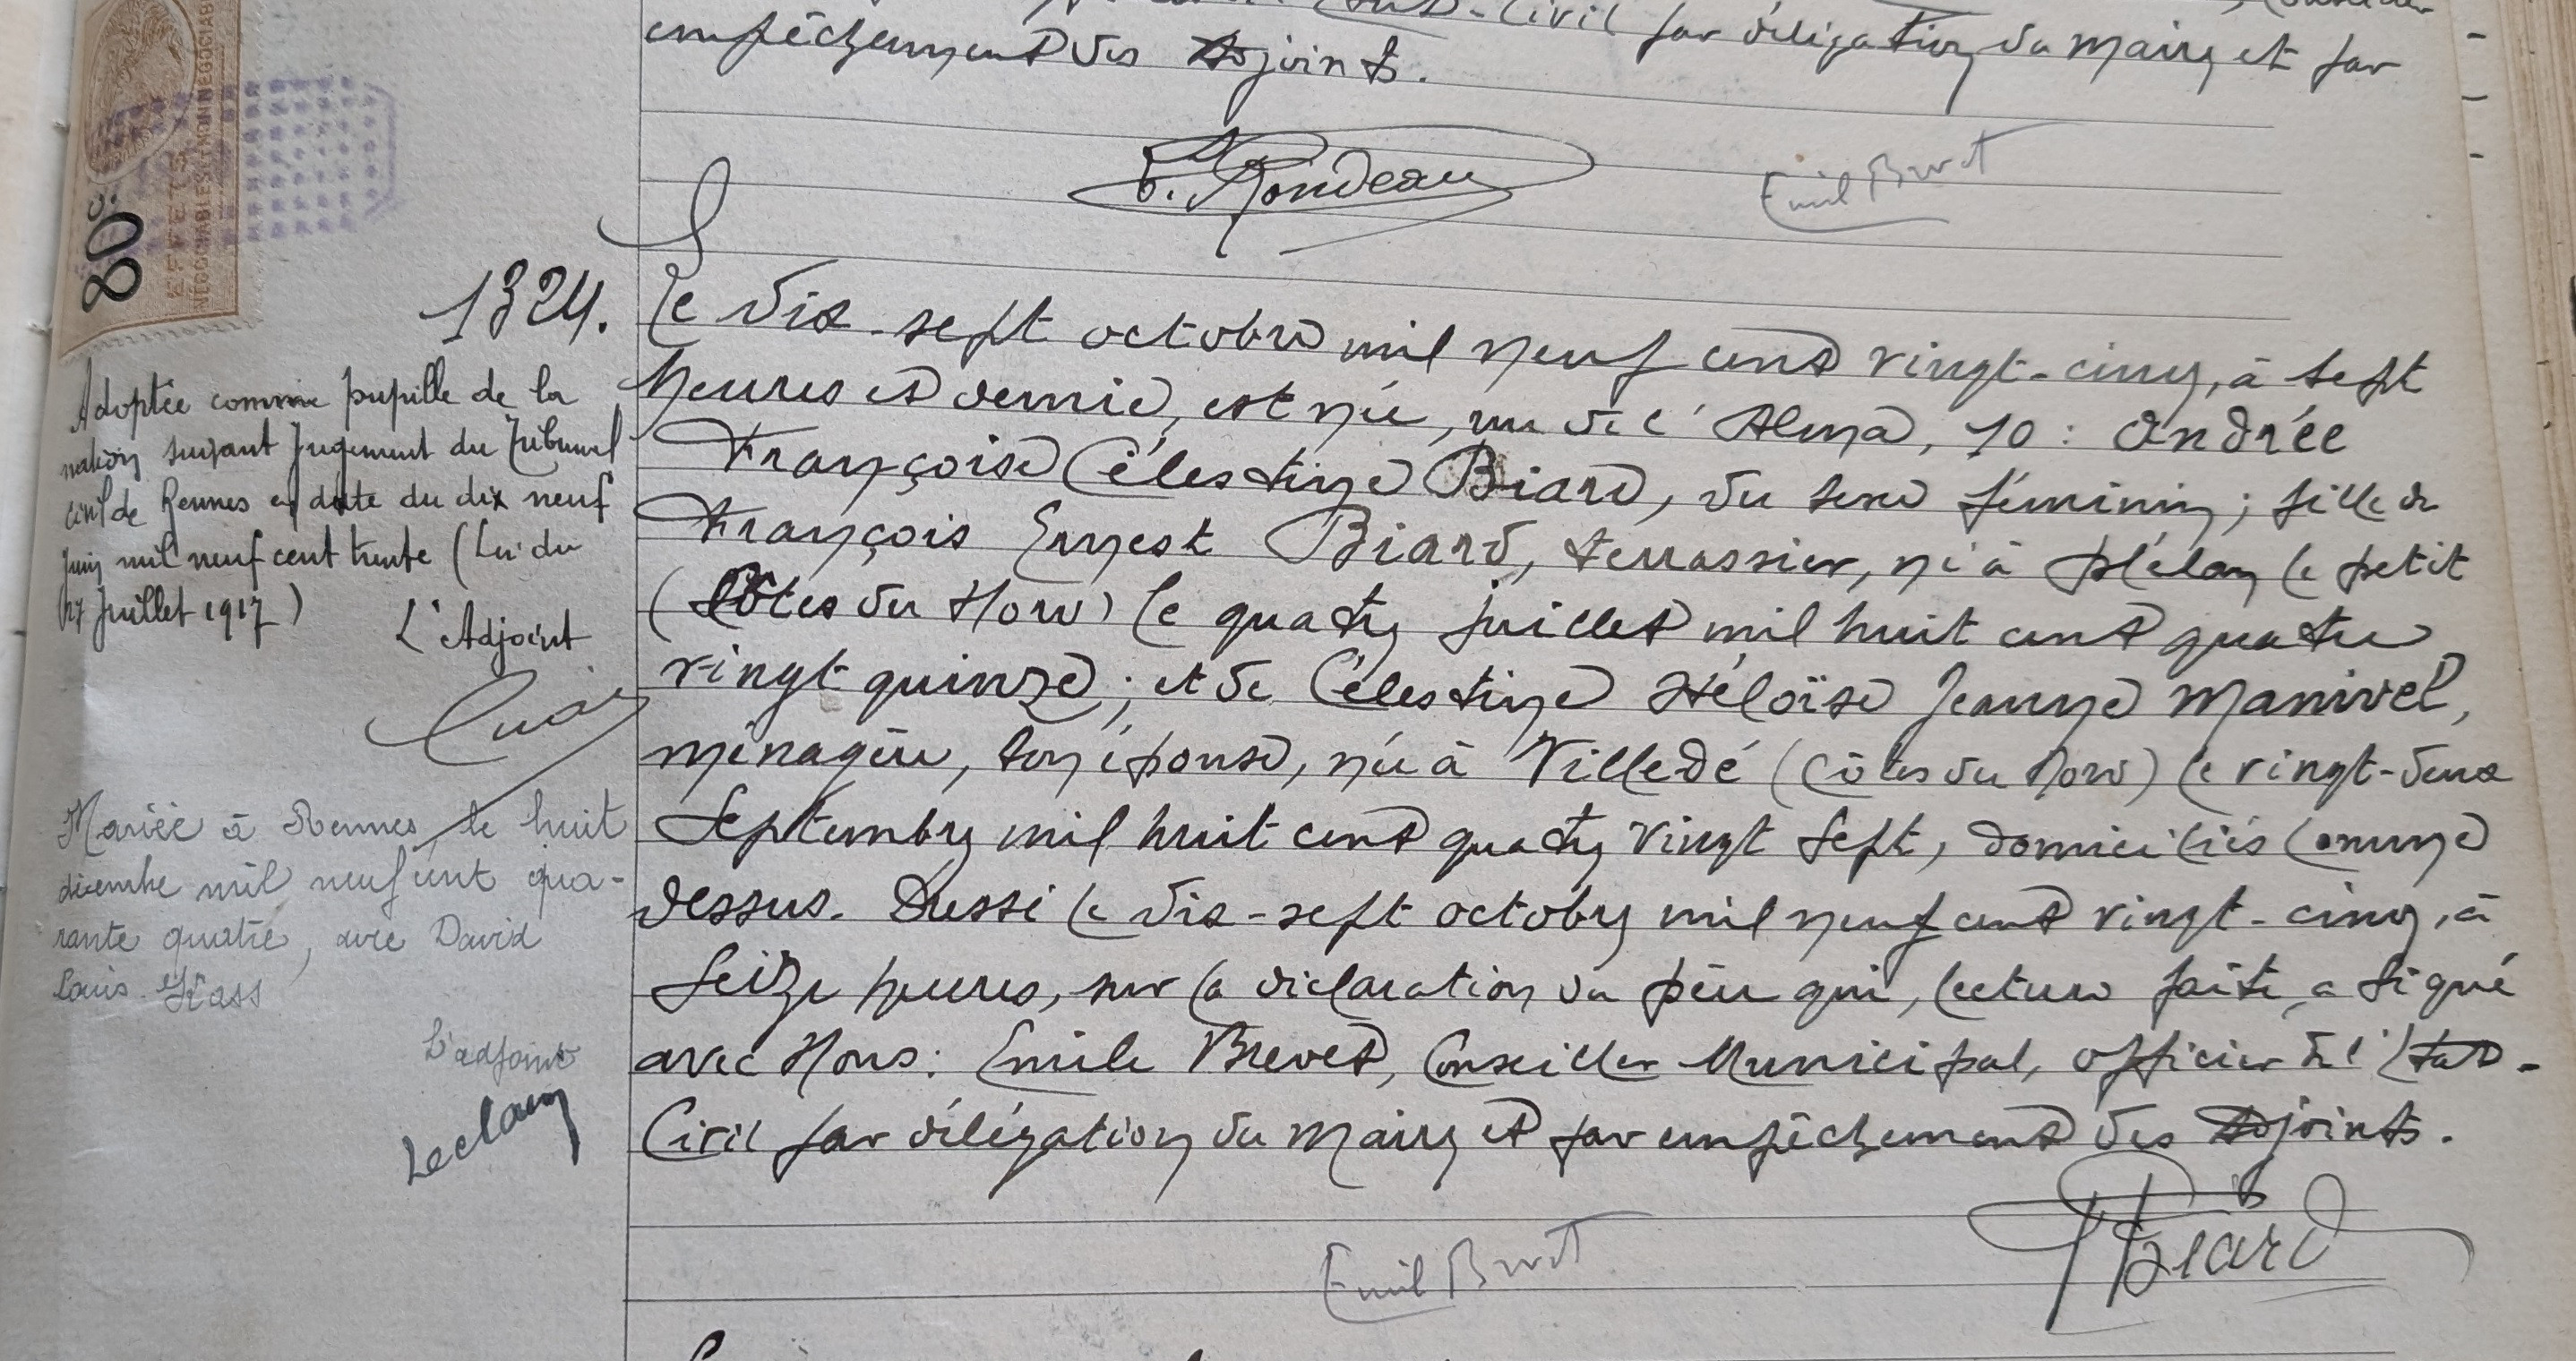 Civil par délégation du Maire et par
empêchement des Adjoints.
E. Rondeau
Emil Brevet
80 c.
EFFETS
NÉGOCIABLES ET NON NÉGOCIABLES
1324.
Le dix-sept octobre mil neuf cent vingt-cinq, à sept
heures et demie, est née, rue de l'Alma, 70 : Andrée
Françoise Célestine Biard, du sexe féminin ; fille de
François Ernest Biard, terrassier, né à Plélan le petit
(Côtes du Nord) le quatre juillet mil huit cent quatre
vingt quinze ; et de Célestine Héloïse Jeanne Manivel,
ménagère, son épouse, née à Villedé (Côtes du Nord) le vingt-deux
Septembre mil huit cent quatre vingt sept, domiciliés comme
dessus. Dressé le dix-sept octobre mil neuf cent vingt-cinq, à
seize heures, sur la déclaration du père qui, lecture faite, a signé
avec Nous : Emile Brevet, Conseiller Municipal, officier de l'Etat-
Civil par délégation du Maire et par empêchement des Adjoints.
Emil Brevet
Biard
Adoptée comme pupille de la
nation suivant jugement du Tribunal
civil de Rennes en date du dix neuf
juin mil neuf cent trente (Loi du
27 Juillet 1917)
L'Adjoint
Mariée à Rennes, le huit
décembre mil neuf cent qua-
rante quatre, avec David
Louis
L'adjoint